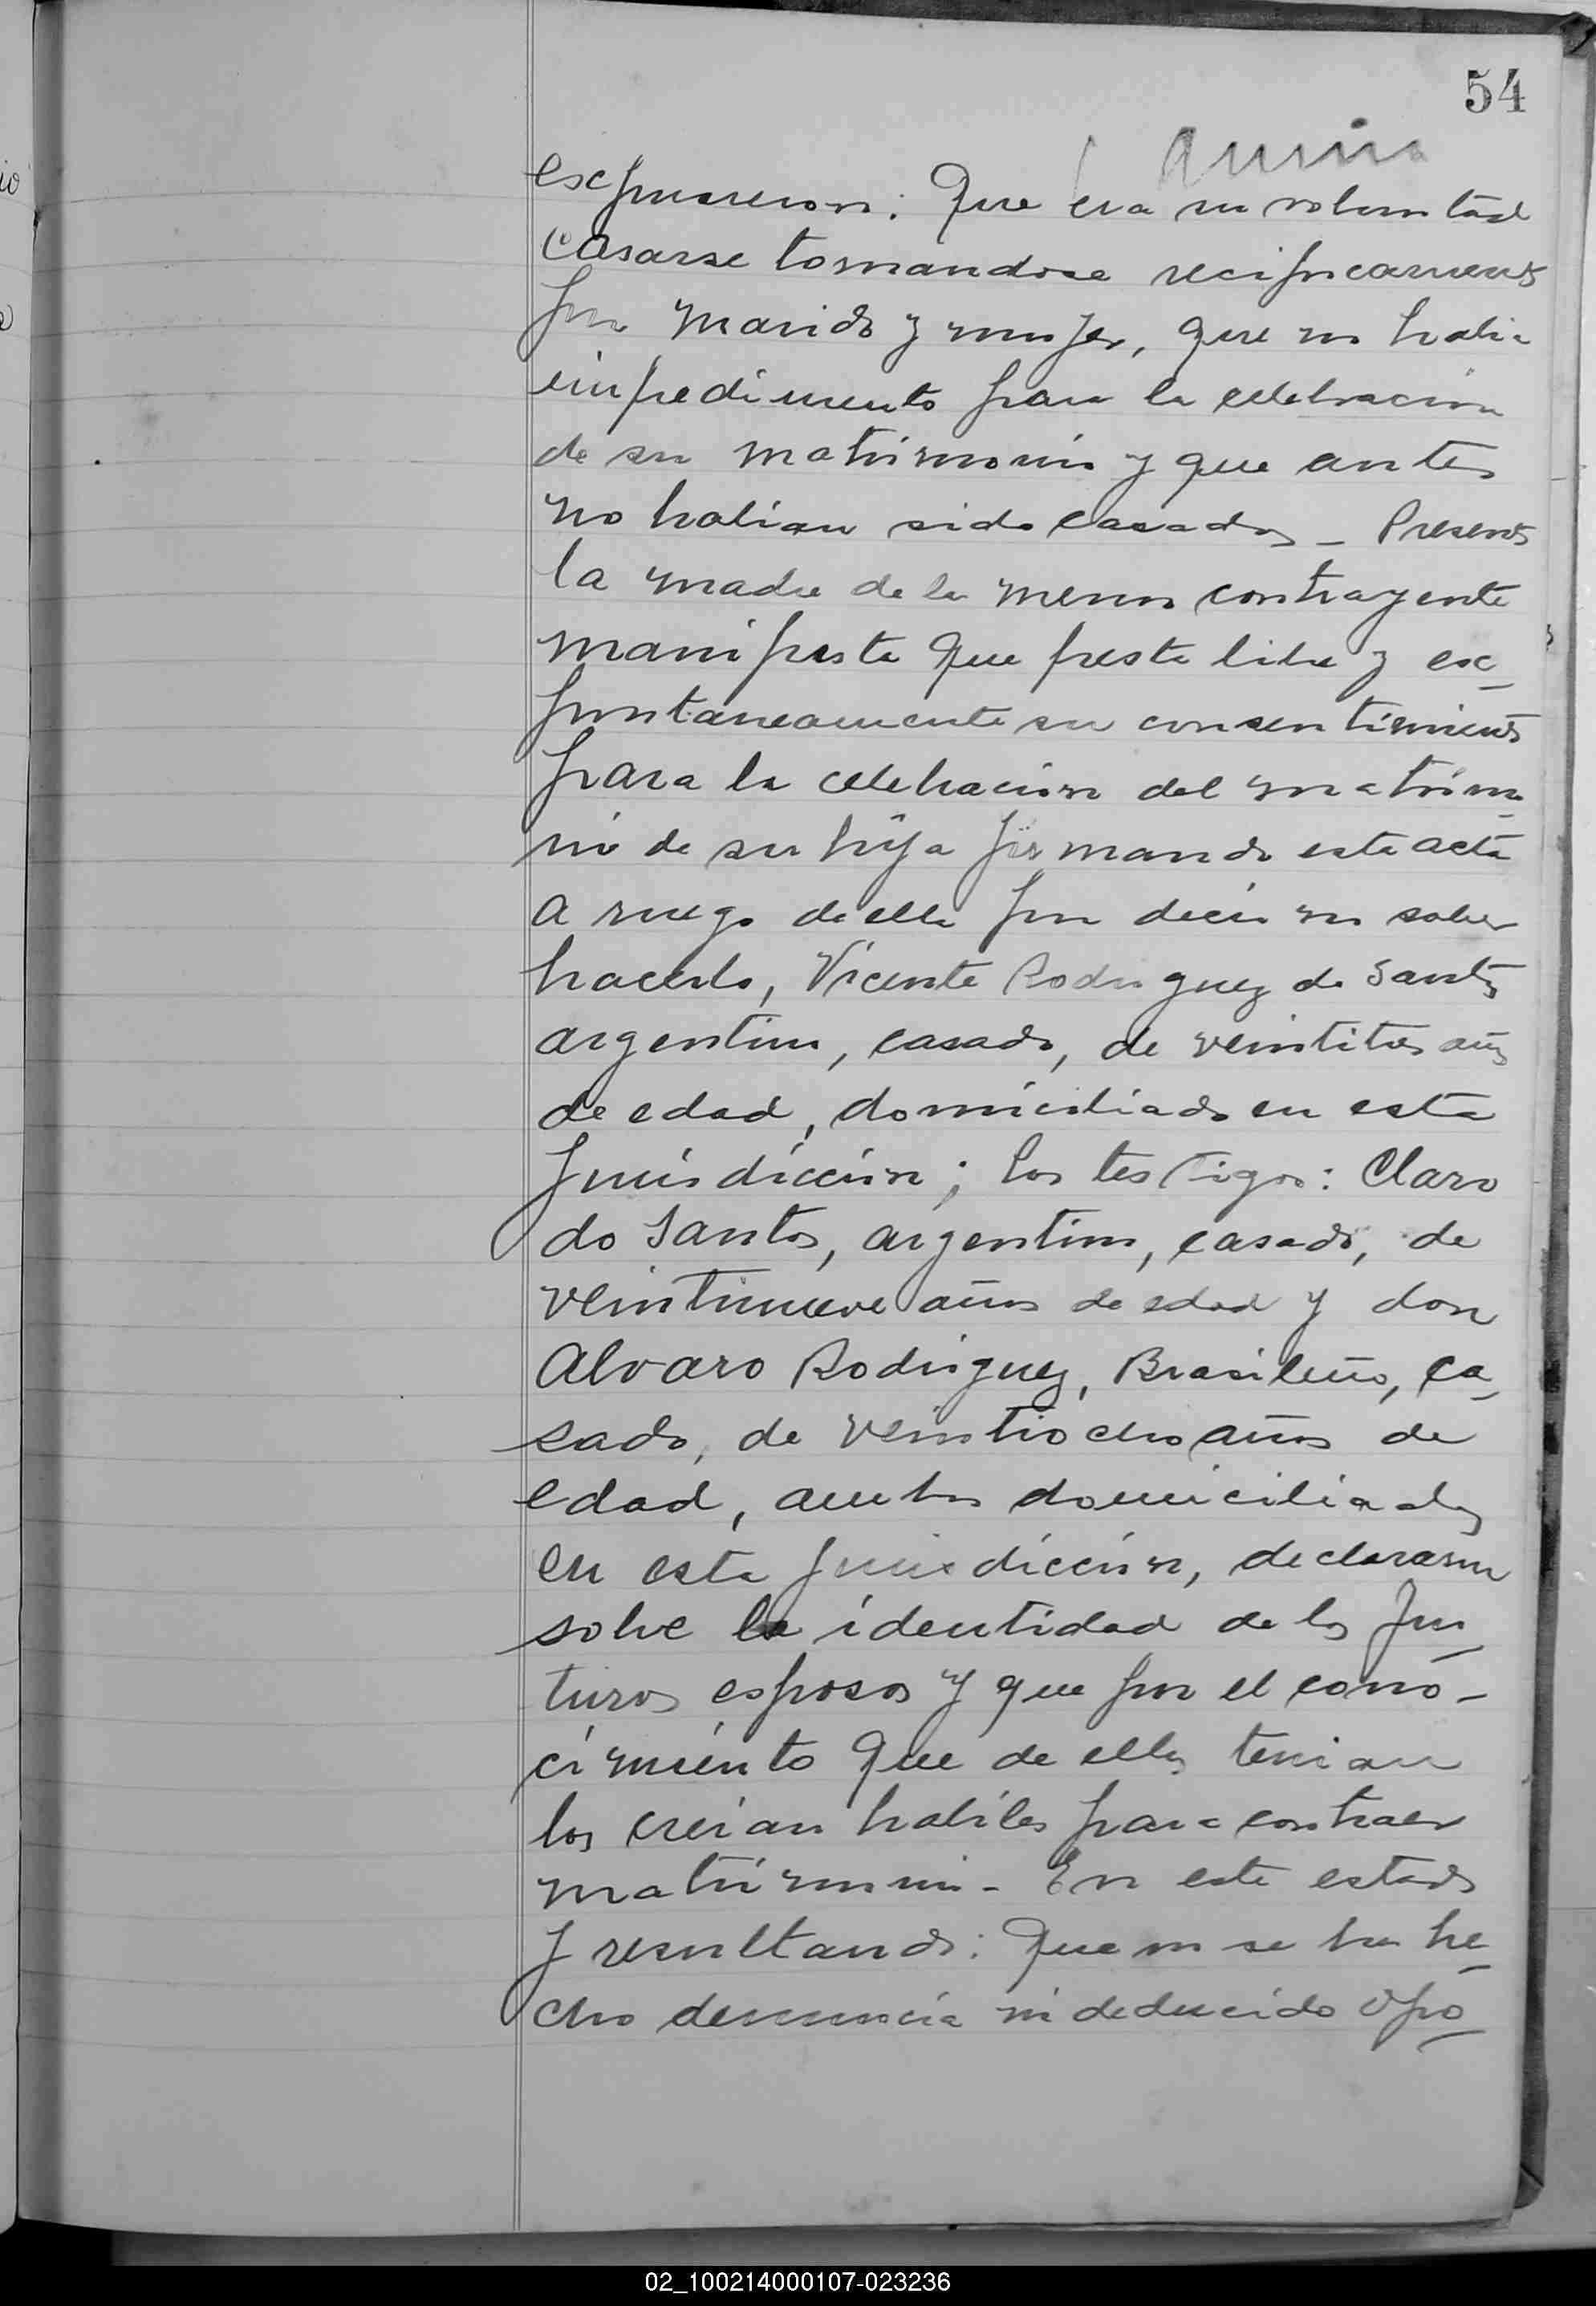 54
escpusieron: Que era su voluntad
casarse tomandose reciprocamente
por marido y mujer, que no habia
impedimento para la celebracion
de su matrimonio y que antes
no habian sido casados _ Presente
la madre de la menor contrayente
manifiesta que presta libre y esc_
pontaneamente su consentimiento
para la celebracion del matrimo_
nio de su hija firmando esta acta
a ruego de ella por decir no saber
hacerlo, Vicente Rodriguez do Santos
argentino, casado, de veintitres años
de edad, domiciliado en esta
Jurisdicción; los testigos: Claro
do Santos, argentino, casado, de
veintinueve años de edad y don
Alvaro Rodriguez, Brasileño, ca_
sado, de veintiocho años de
edad, ambos domiciliados
en esta Jurisdicción, declararon
sobre la identidad de los fu_
turos esposos y que por el cono-
cimiento que de ellos tenian
los creian habiles para contraer
matrimonio - En este estado
y resultando: Que no se ha he_
cho denuncia ni deducido opo_
02_100214000107-023236